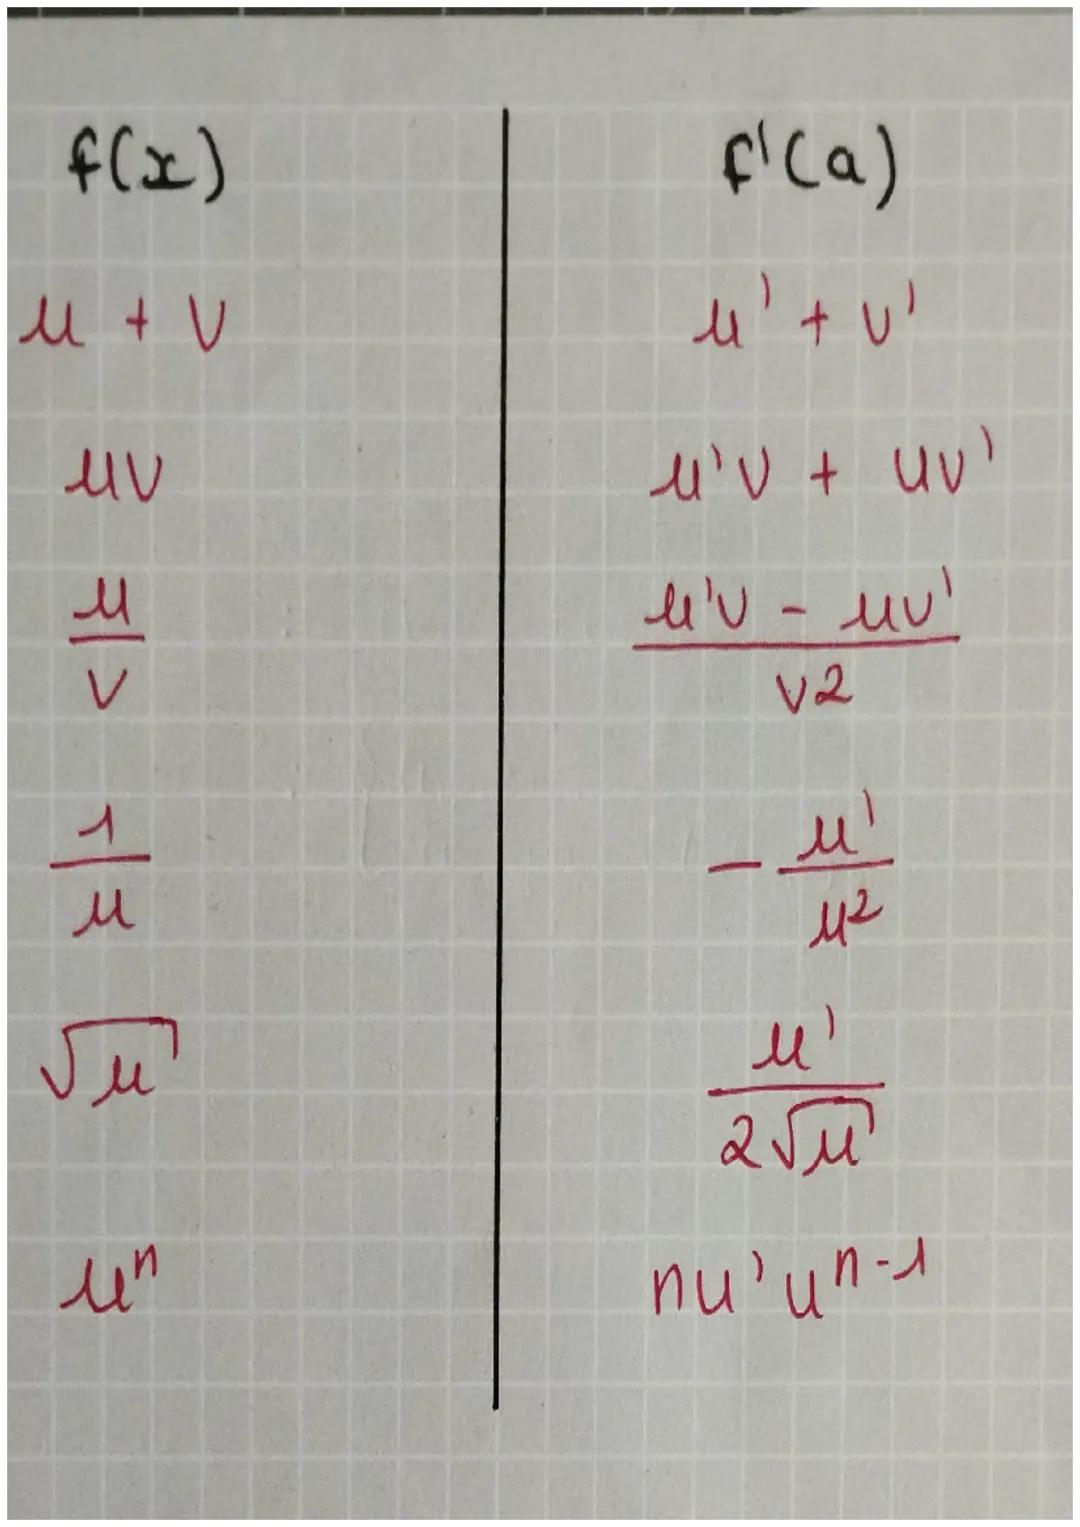 f(x) f'(a)
u + v u' + v'
uv u'v + uv'
u/v (u'v - uv')/v2
1/u - u'/u²
√u u'/(2√u)
uⁿ nu'uⁿ⁻¹